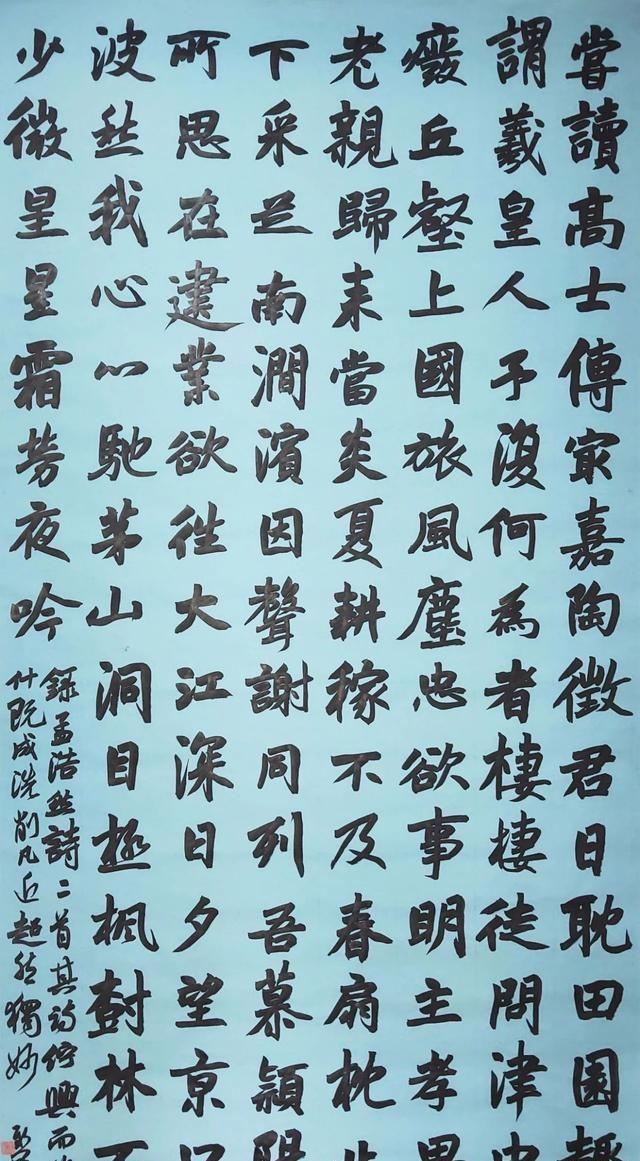 嘗讀高士傳最嘉陶徵君日耽田園趣
謂羲皇人予復何為者棲棲徒問津中
廢丘壑上國旅風塵忠欲事明主孝思
老親歸來當炎夏耕稼不及春扇枕北
下采芝南澗濱因聲謝同列吾慕潁陽
所思在建業欲往大江深日夕望京口
波愁我心心馳茅山洞目極楓樹林不
少微星星霜勞夜吟
錄孟浩然詩二首其詩佇興而
什既成洗削凡近超然獨妙